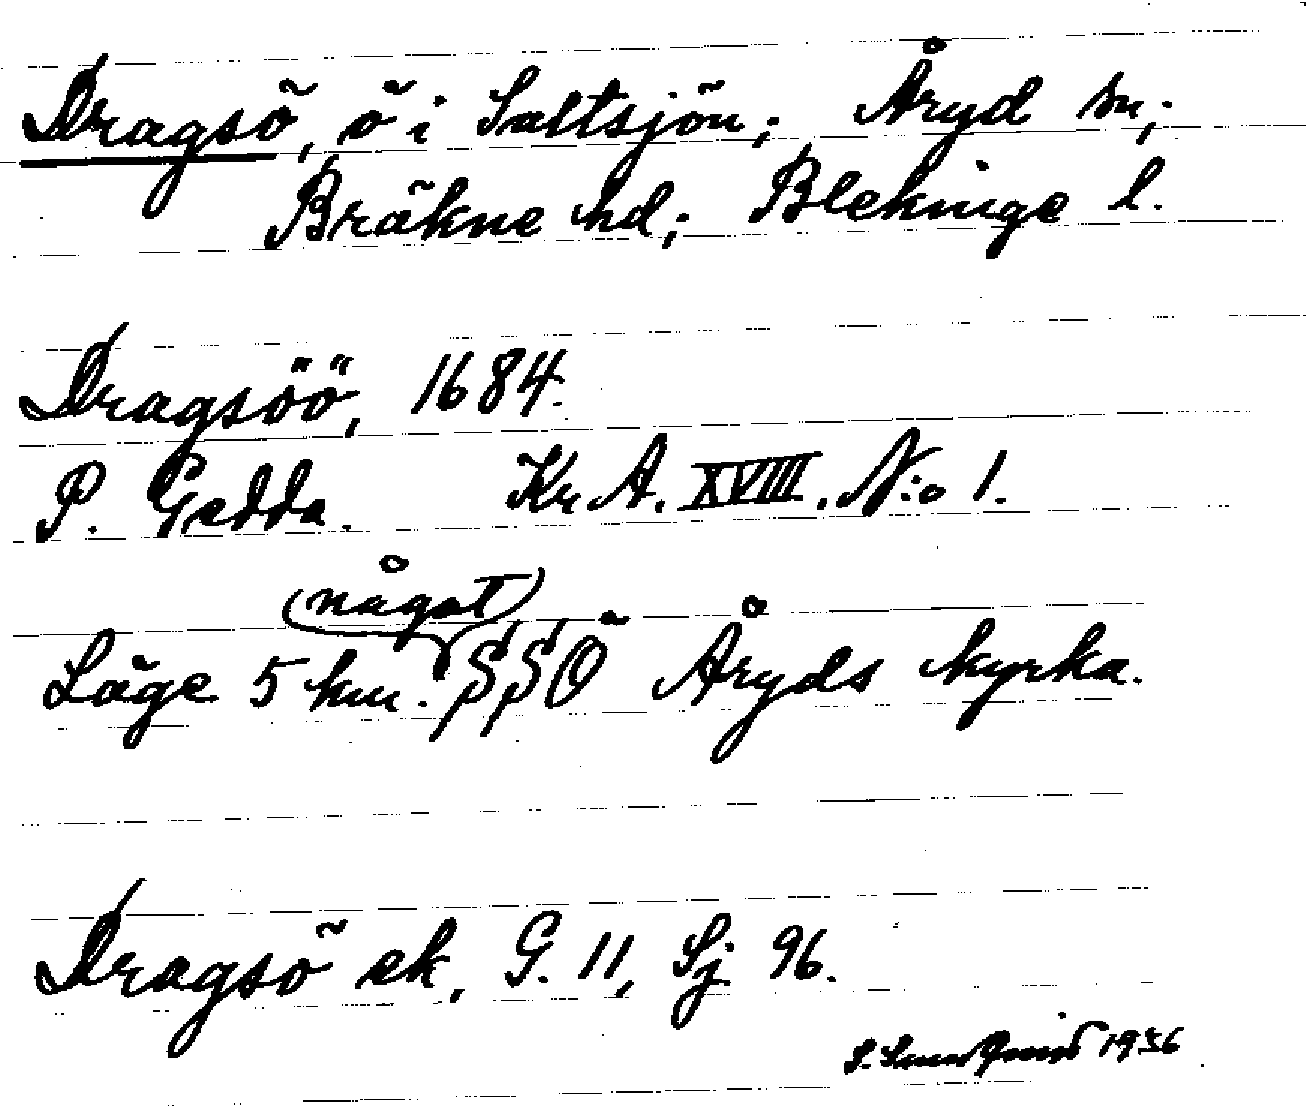 Dragsö, ö i Saltsjön; Åryd sn;
Bräkne hd; Blekinge l.
Dragsöö, 1684.
P. Gedda. Kr A. XVIII. N:o 1.
(något)
Läge 5 km. SSÖ Åryds kyrka.
Dragsö ek, G. 11, Sj 96.
1936